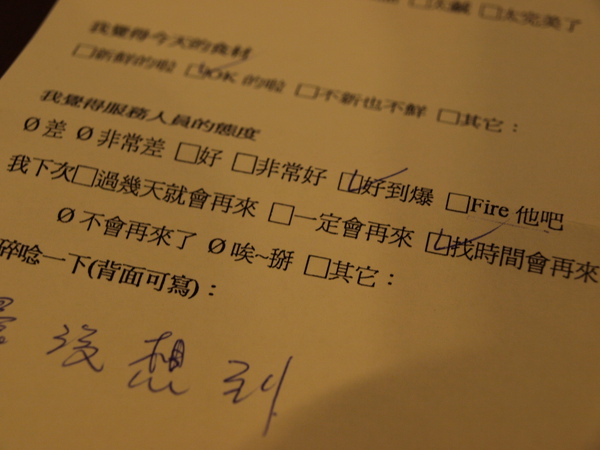 太鹹 □太完美了
我覺得今天的食材
□新鮮的啦 □OK 的啦 □不新也不鮮 □其它：
我覺得服務人員的態度
Ø 差 Ø 非常差 □好 □非常好 □好到爆 □Fire 他吧
我下次□過幾天就會再來 □一定會再來 □找時間會再來
Ø 不會再來了 Ø 唉~掰 □其它：
碎唸一下(背面可寫)：
沒想到